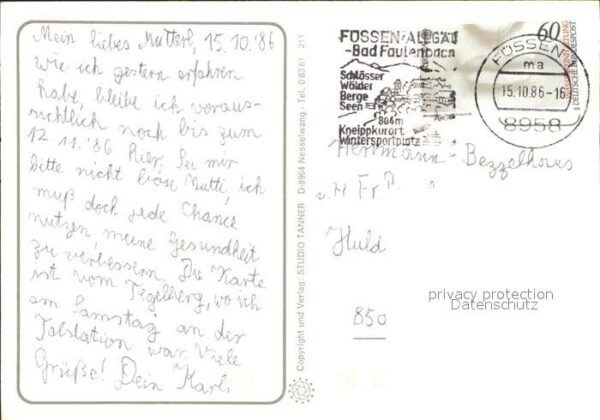 Mein liebes Mutterl, 15.10.'86
wie ich gestern erfahren
habe, bleibe ich voraus-
sichtlich noch bis zum
12.11.'86 hier. Sei mir
bitte nicht böse Mutti, ich
muß doch jede Chance
nutzen, meine Gesundheit
zu verbessern. Die Karte
ist vom Tegelberg, wo ich
am Samstag an der
Talstation war. Viele
Grüße! Dein Karl
Copyright und Verlag: STUDIO TANNER D-8964 Nesselwang - Tel. 0 83 61 211
FÜSSEN/ALLGÄU
-Bad Faulenbach
Schlösser
Wälder
Berge
Seen
804m
Kneippkurort
Wintersportplatz
60
DEUTSCHE BUNDESPOST
FÜSSEN
ma
15.10.86-16
8958
Herrmann-Bezzelhaus
Fr
Huld
850
privacy protection
Datenschutz